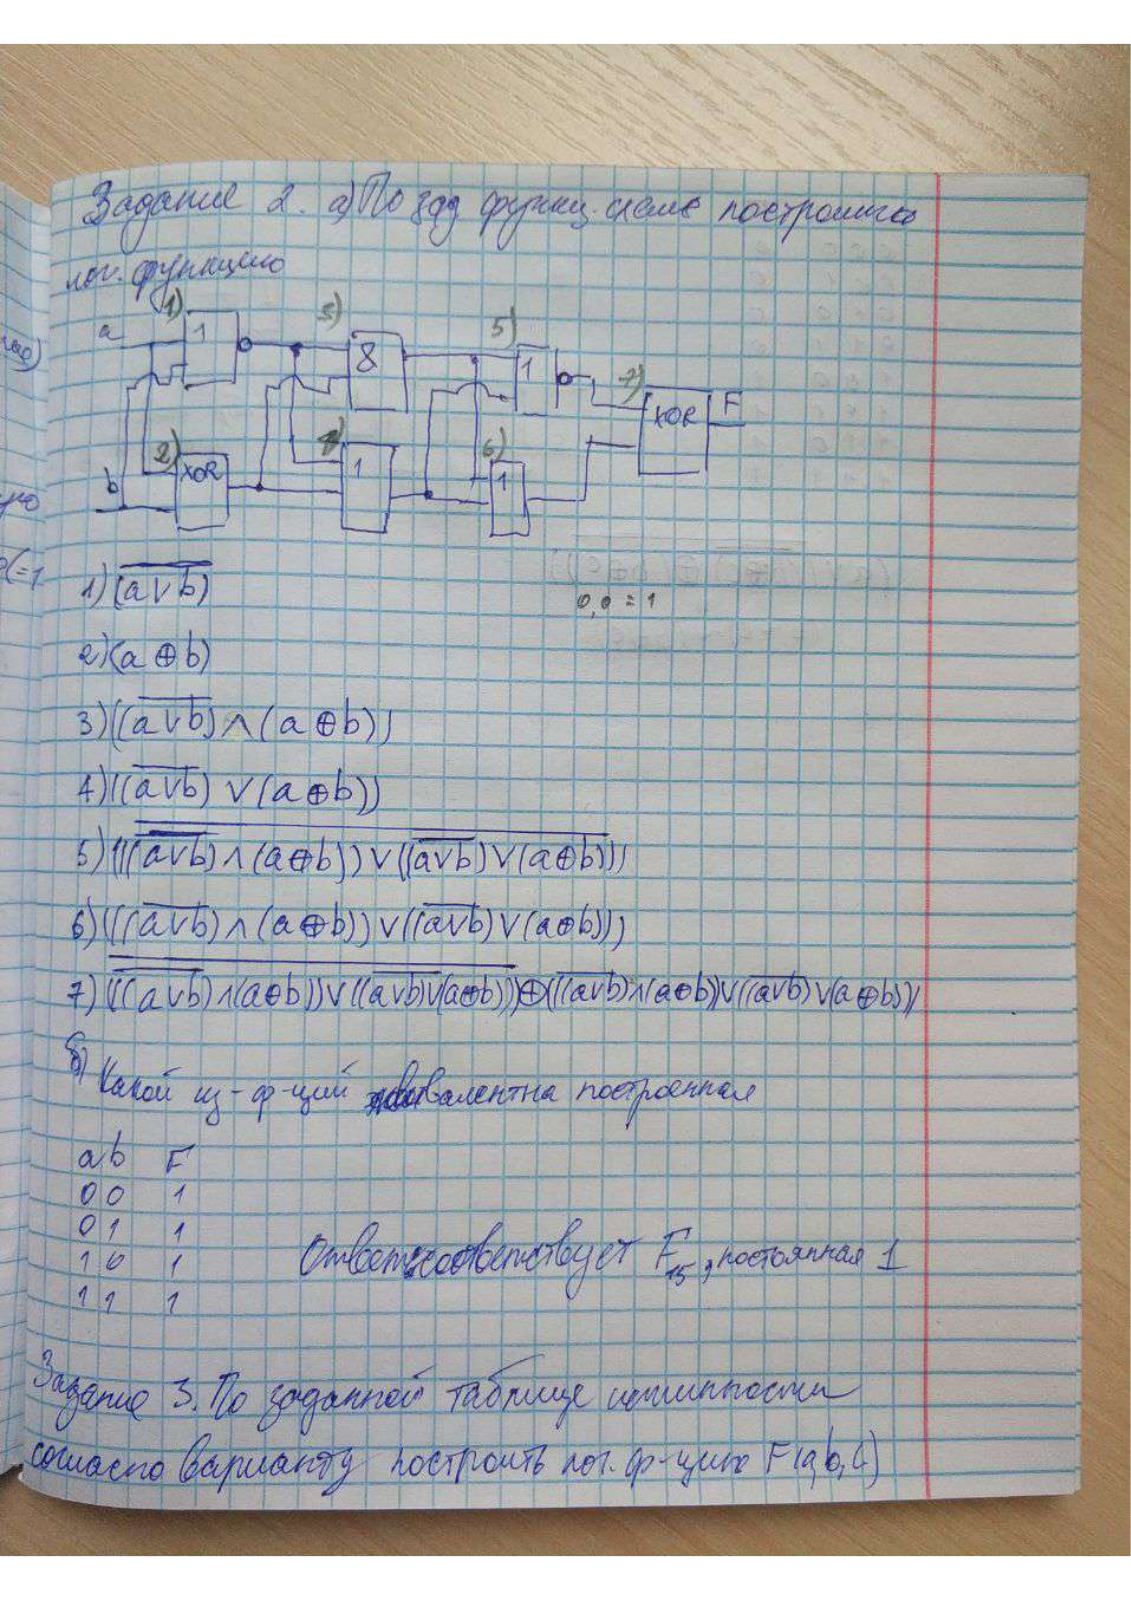 Задание 2. а) По зад функц. схеме построить
лог. функцию
1) 3) 5)
a 1 8 1 7)
XOR F
2) 4) 6)
b XOR 1 1
1) (a∨b)̅
0,0 = 1
2) (a ⊕ b)
3) ((a∨b)̅ ∧ (a ⊕ b))
4) ((a∨b)̅ ∨ (a ⊕ b))
5) (((a∨b)̅ ∧ (a ⊕ b)) ∨ ((a∨b)̅ ∨ (a ⊕ b)))̅
6) (((a∨b)̅ ∧ (a ⊕ b)) ∨ ((a∨b)̅ ∨ (a ⊕ b)))
7) (((a∨b)̅ ∧ (a ⊕ b)) ∨ ((a∨b)̅ ∨ (a ⊕ b)))̅ ⊕ (((a∨b)̅ ∧ (a ⊕ b)) ∨ ((a∨b)̅ ∨ (a ⊕ b)))
б) Какой из ф-ций эквивалентна построенная
a b F
0 0 1
0 1 1
1 0 1
Ответ: соответствует F15, постоянная 1
1 1 1
Задание 3. По заданной таблице истинности
согласно варианту построить лог. ф-цию F(a,b,c)